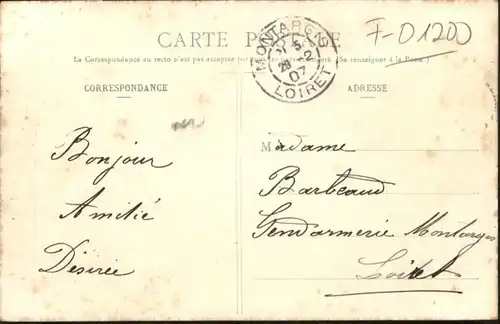 CARTE POSTALE
F-D1200
MONTARGIS
5
28 -2
07
LOIRET
La Correspondance au recto n'est pas acceptée par (Se renseigner à la Poste.)
CORRESPONDANCE
ADRESSE
Bonjour
Amitié
Désirée
Madame
Barbeaud
Gendarmerie Montargis
Loiret